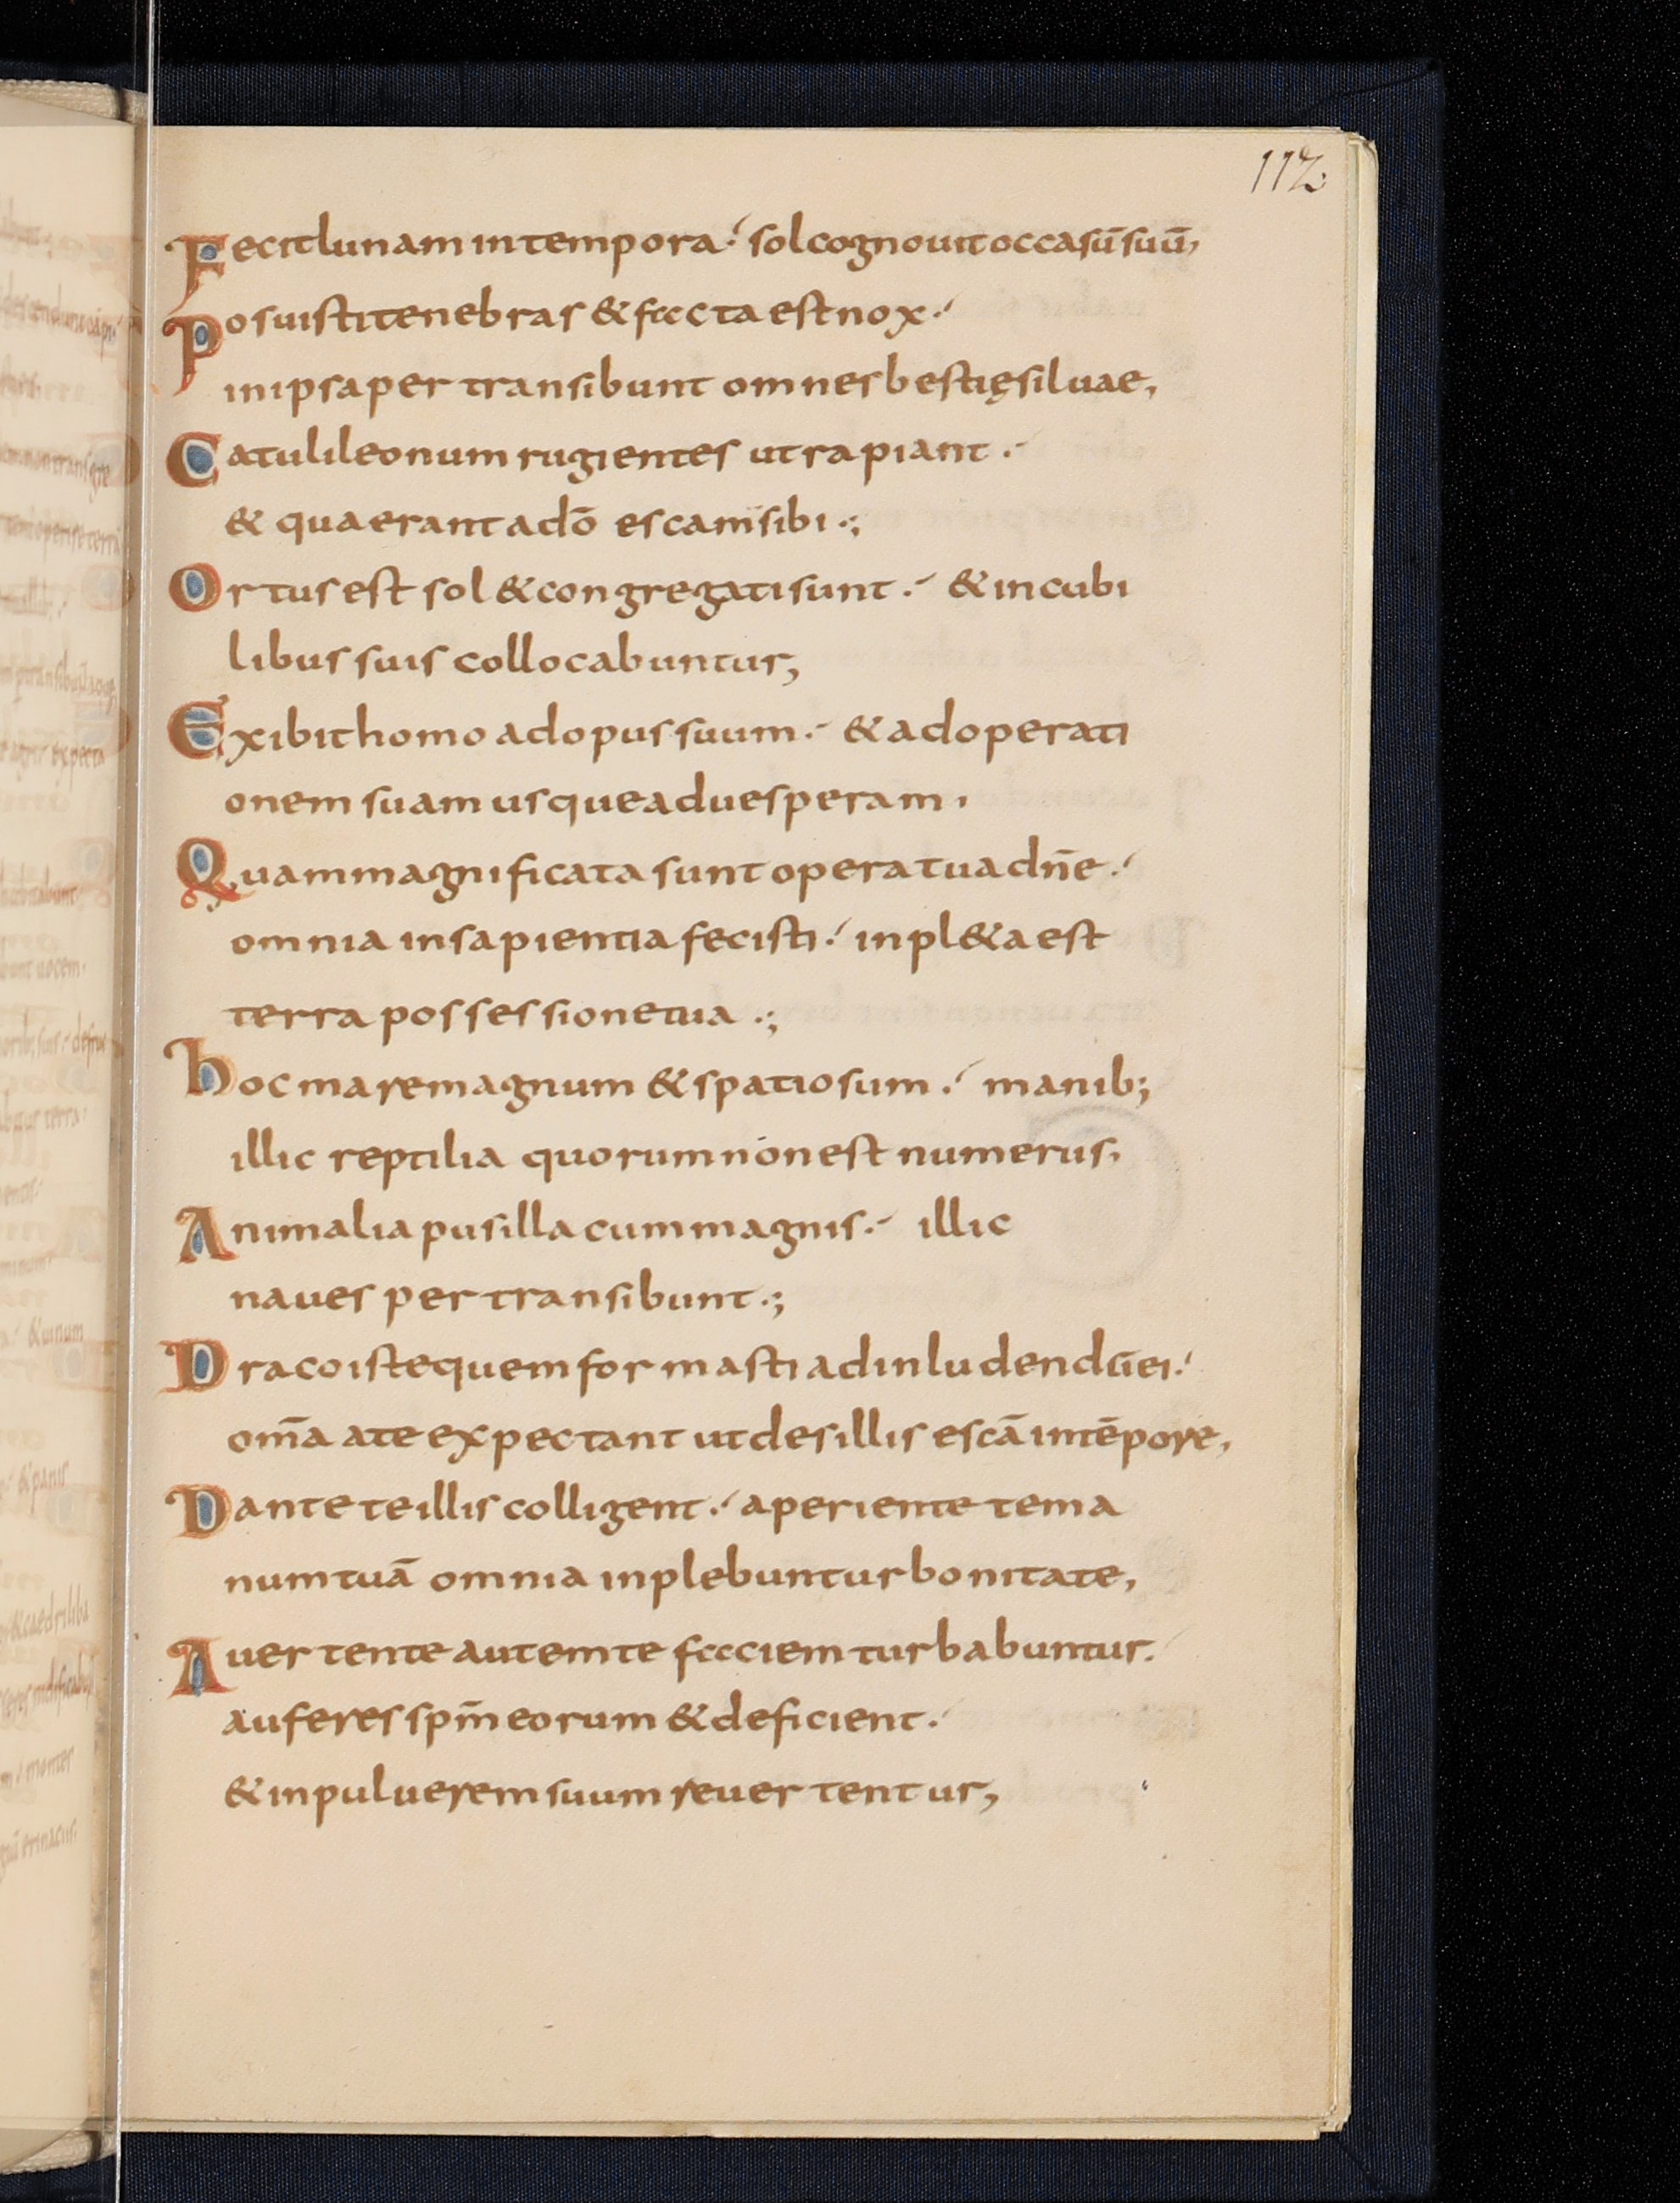 112
Fecit lunam in tempora sol cognouit occasū suū,
Posuisti tenebras & facta est nox
in ipsa per transibunt omnes bestię siluae,
Catuli leonum rugientes ut rapiant
& quaerant a dō escam sibi
Ortus est sol & congregati sunt & in cubi
libus suis collocabuntur,
Exibit homo ad opus suum & ad operati
onem suam usque ad uesperam
Quam magnificata sunt opera tua dn̄e
omnia in sapientia fecisti inpl&a est
terra possessione tua
hoc mare magnum & spatiosum manib;
illic reptilia quorum non est numerus
Animalia pusilla cum magnis illic
naues per transibunt
Draco iste quem formasti ad inludendū ei
om̄a a te expectant ut des illis escā in tēpore,
Dante te illis colligent aperiente te ma
num tuā omnia inplebuntur bonitate,
Auertente autem te faciem turbabuntur.
auferes spm̄ eorum & deficient
& in puluerem suum reuertentur,